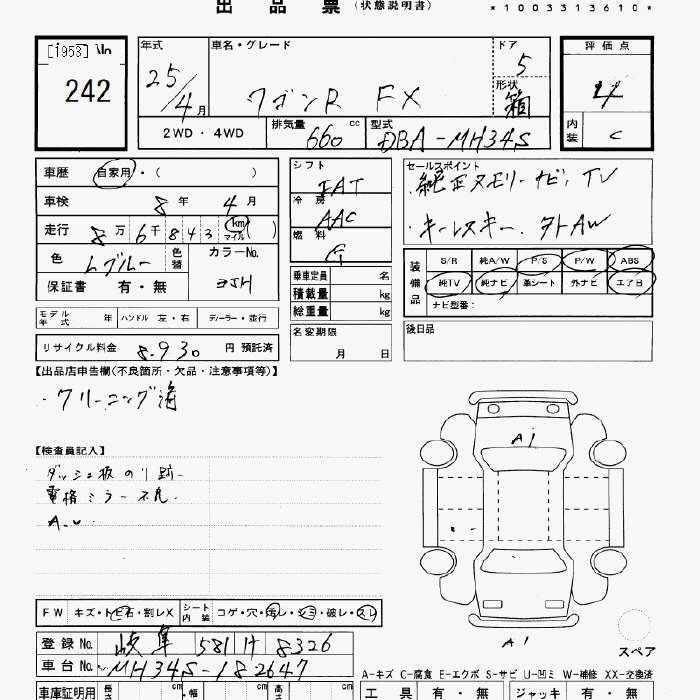 出品票 (状態説明書) *1003313610*
[1953]
242
年式 25/4月
車名・グレード ワゴンR FX
ドア 5
形状 箱
評価点 4
内装 C
2WD・4WD
排気量 660 cc
型式 DBA-MH34S
車歴 自家用・( )
車検 8年 4月
走行 8万6千843 km マイル ( )
色 Lグルー 色替
カラーNo. ZJH
保証書 有・無
シフト FAT
冷房 AAC
燃料
乗車定員 名
積載量 kg
総重量 kg
セールスポイント
・純正メモリーナビ、TV
・キーレスキー
装備品 S/R 純A/W P/S P/W ABS
純TV 純ナビ 革シート 外ナビ エアB
ナビ型番:
モデル年式 年 ハンドル 左・右 ディーラー・並行
名変期限 月 日
後日品
リサイクル料金 8,930 円 預託済
【出品店申告欄(不良箇所・欠品・注意事項等)】
・クリーニング済
【検査員記入】
ダッシュ板のり跡
電格ミラー不良
A.U
A1
A1
スペア
FW キズ・トビ石・割レX シート内装 コゲ・穴・汚レ・シミ・破レ・スレ
登録No. 岐阜 581 H 8326
車台No. MH34S-182647
A-キズ C-腐食 E-エクボ S-サビ U-凹ミ W-補修 XX-交換済
車庫証明用 長さ cm 幅 cm 高さ cm
工具 有・無 ジャッキ 有・無